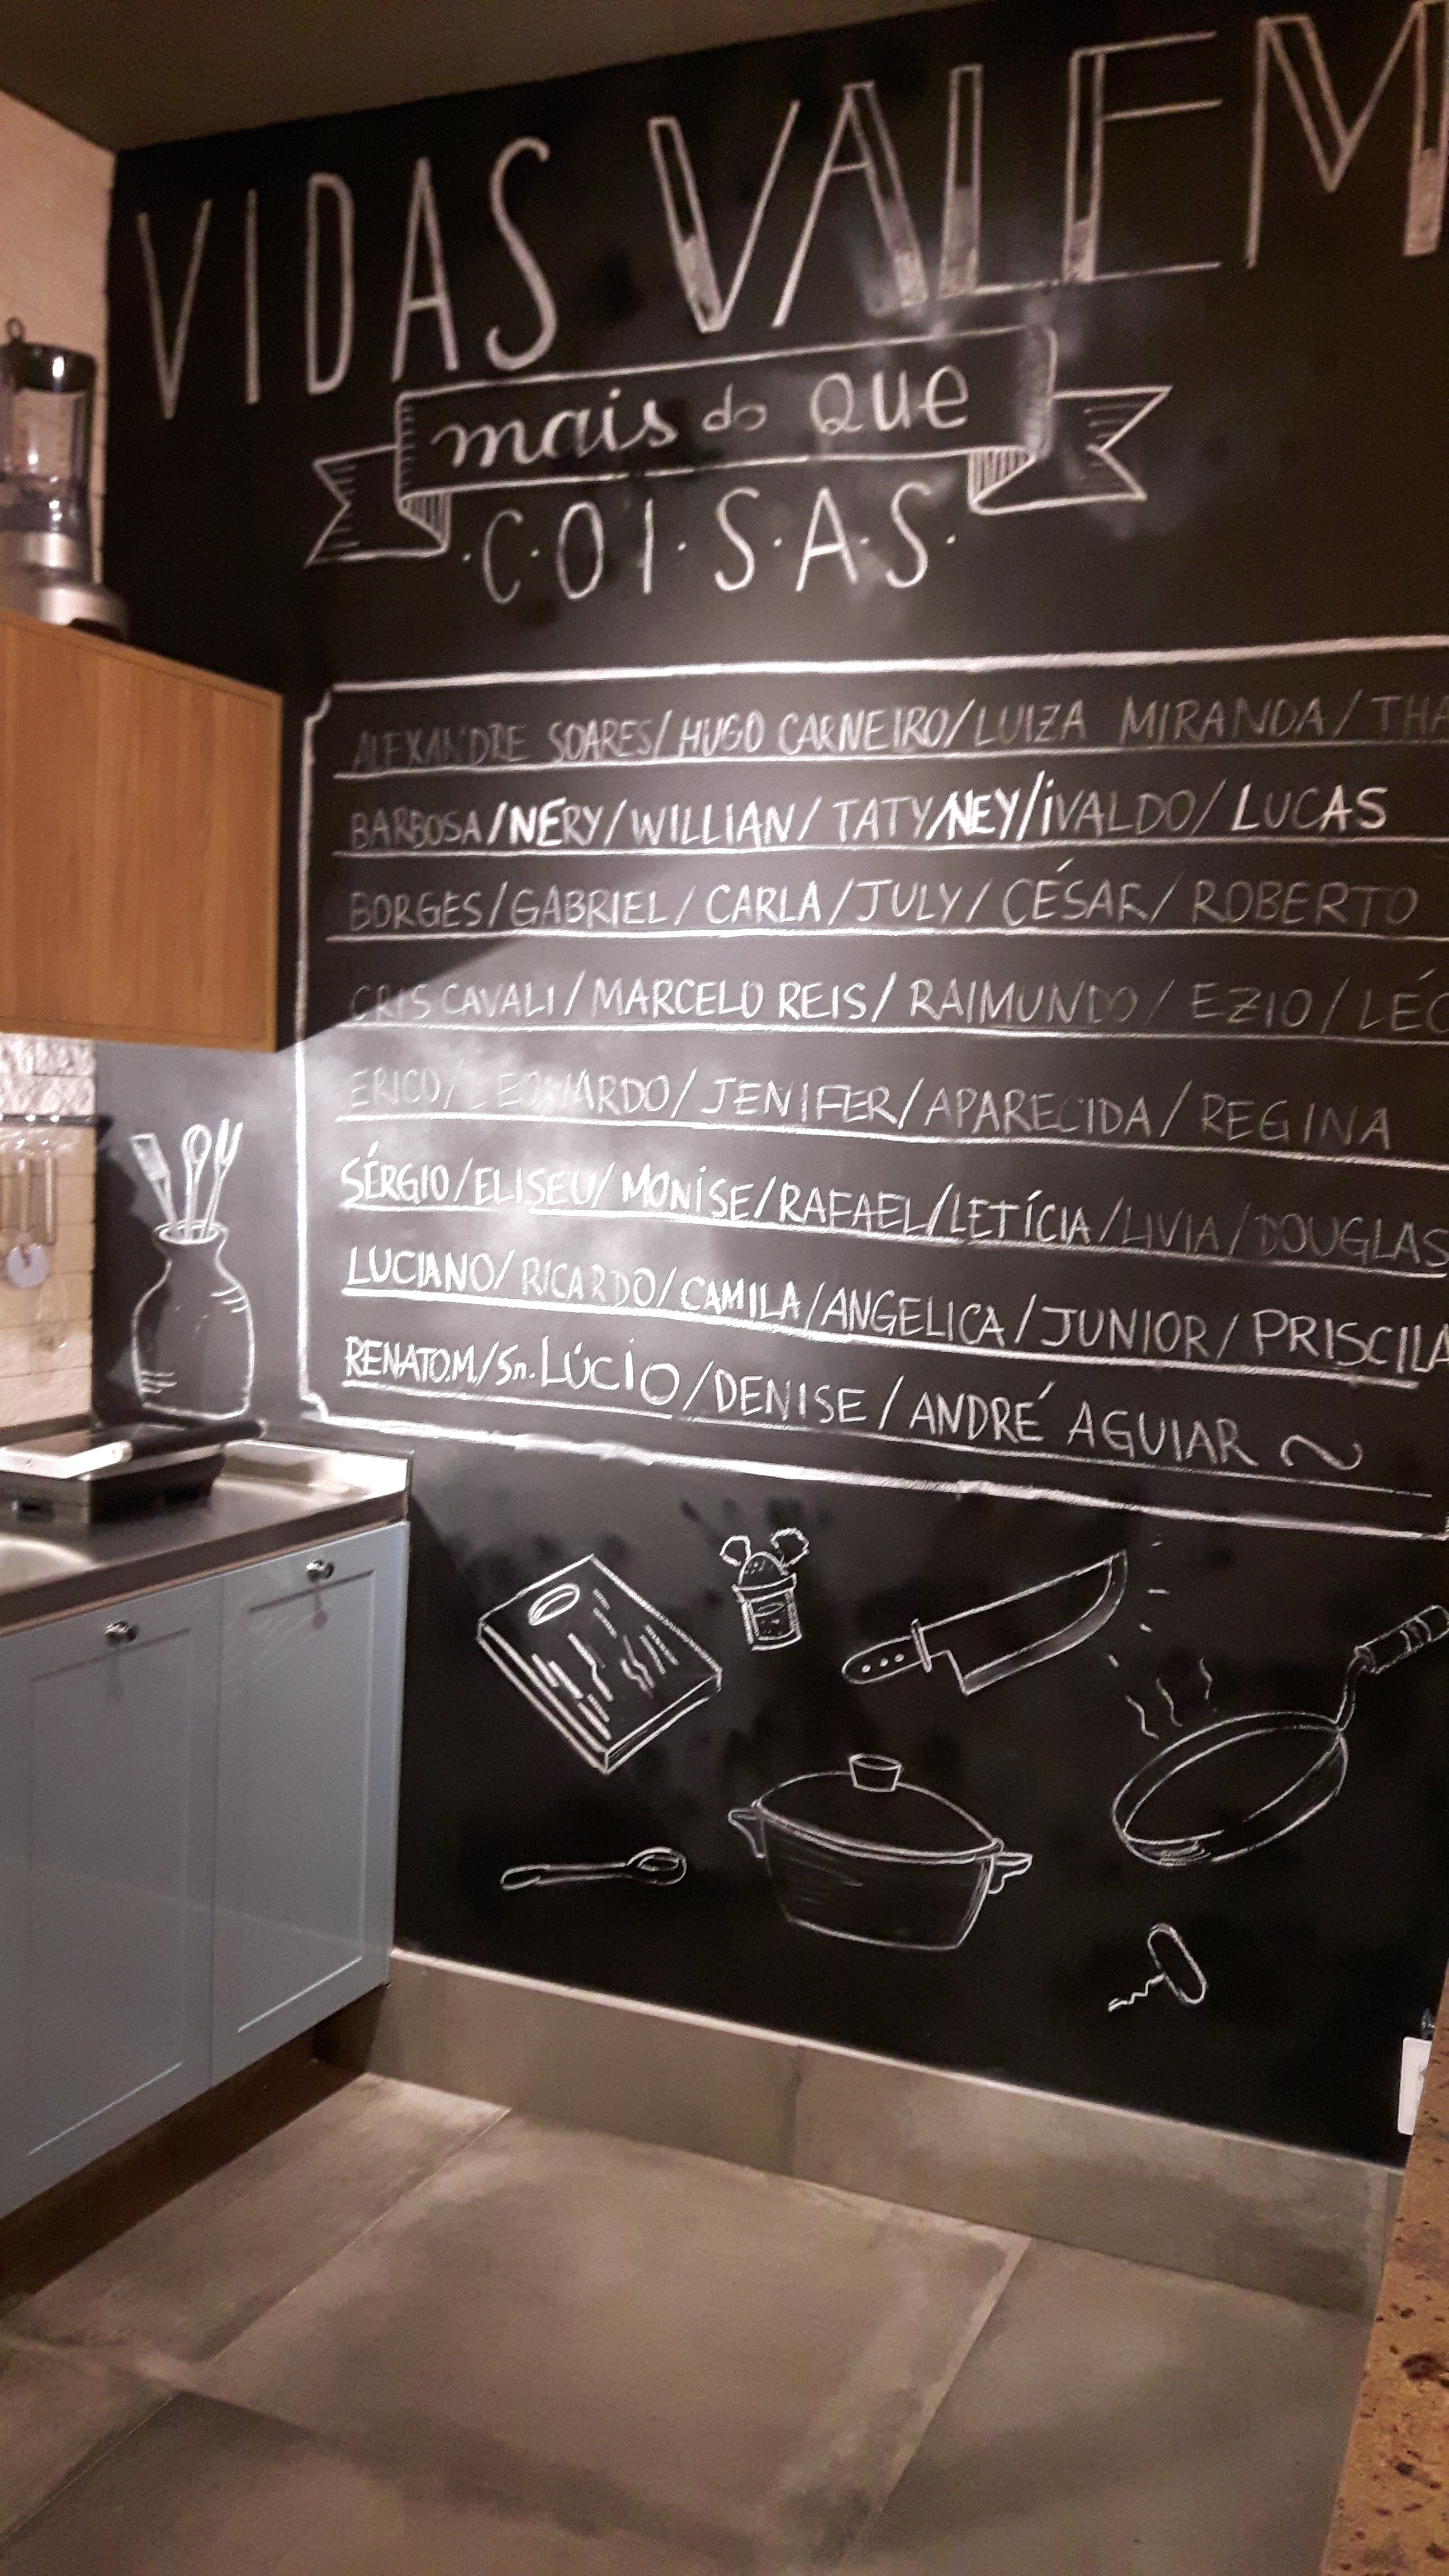 VIDAS VALEM
mais do QUE
C·O·I·S·A·S
ALEXANDRE SOARES/HUGO CARNEIRO/LUIZA MIRANDA/THA
BARBOSA/NERY/WILLIAN/TATY/NEY/IVALDO/LUCAS
BORGES/GABRIEL/CARLA/JULY/CÉSAR/ROBERTO
CRIS CAVALI/MARCELO REIS/RAIMUNDO/EZIO/LÉO
ERICO/LEONARDO/JENIFER/APARECIDA/REGINA
SÉRGIO/ELISEU/MONISE/RAFAEL/LETÍCIA/LIVIA/DOUGLAS
LUCIANO/RICARDO/CAMILA/ANGELICA/JUNIOR/PRISCILA
RENATO.M./Sr. LÚCIO/DENISE/ANDRÉ AGUIAR ~